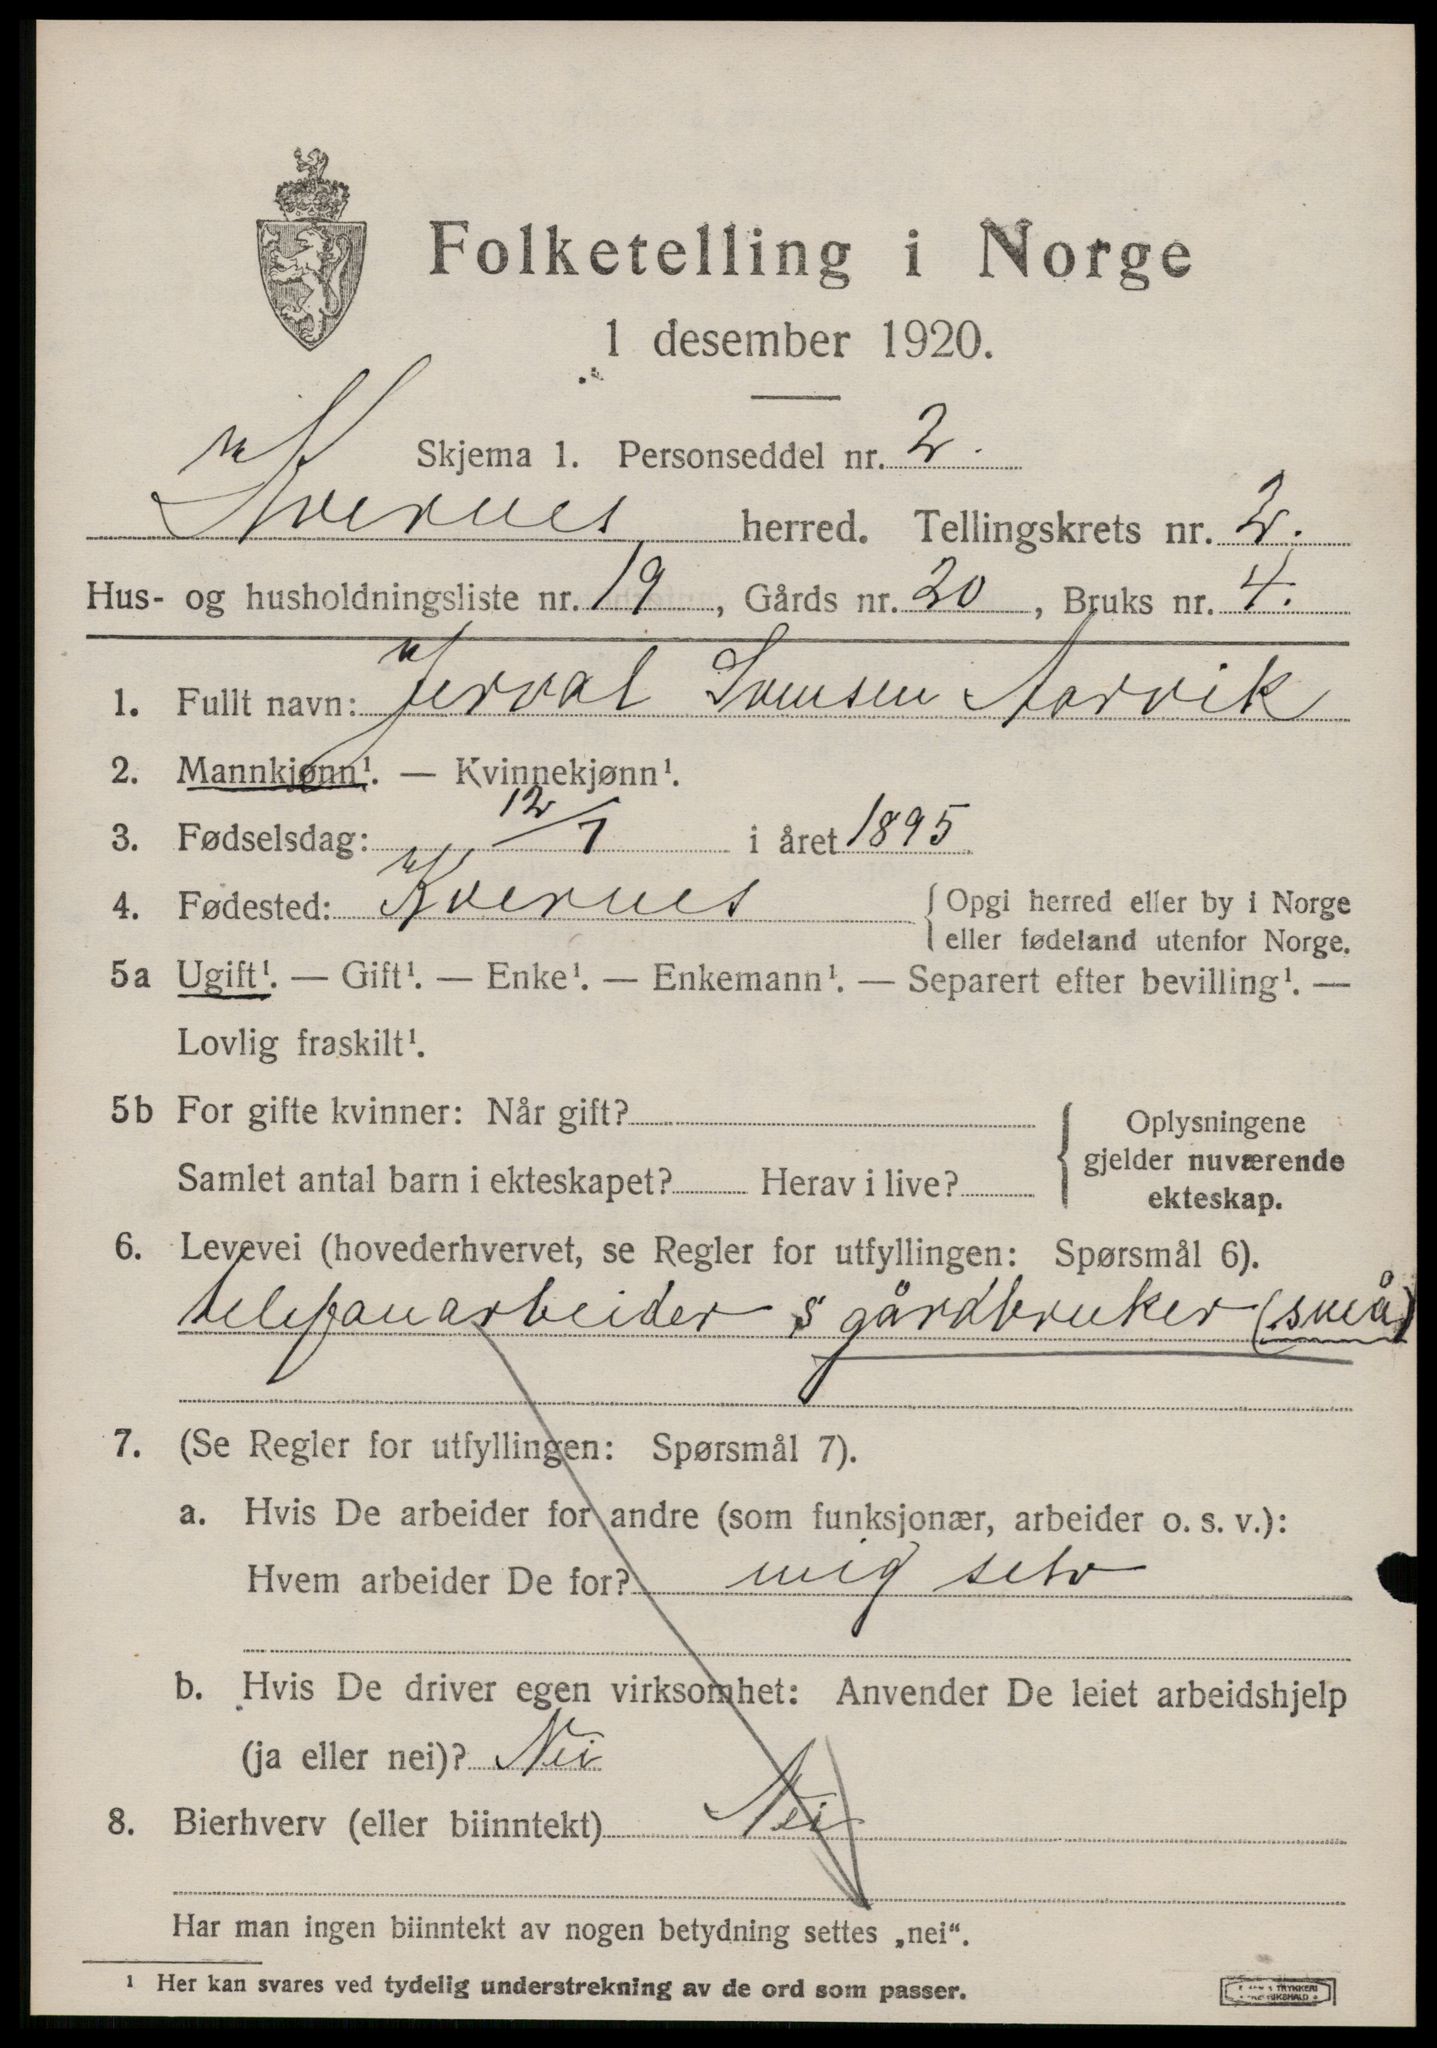 Folketelling i Norge
1 desember 1920.
Skjema 1. Personseddel nr. 2.
Kvernes herred. Tellingskrets nr. 2.
Hus- og husholdningsliste nr. 19, Gårds nr. 20, Bruks nr. 4.
1. Fullt navn: Aarvik
2. Mannkjønn¹. — Kvinnekjønn¹.
3. Fødselsdag: 12/7 i året 1895
4. Fødested: Kvernes { Opgi herred eller by i Norge
eller fødeland utenfor Norge.
5a Ugift¹. — Gift¹. — Enke¹. — Enkemann¹. — Separert efter bevilling¹. —
Lovlig fraskilt¹.
5b For gifte kvinner: Når gift? { Oplysningene
gjelder nuværende
Samlet antal barn i ekteskapet? Herav i live?
ekteskap.
6. Levevei (hovederhvervet, se Regler for utfyllingen: Spørsmål 6).
telefonarbeider gårdbruker (små)
7. (Se Regler for utfyllingen: Spørsmål 7).
a. Hvis De arbeider for andre (som funksjonær, arbeider o. s. v.):
Hvem arbeider De for? mig selv
b. Hvis De driver egen virksomhet: Anvender De leiet arbeidshjelp
(ja eller nei)? Nei
8. Bierhverv (eller biinntekt) Nei
Har man ingen biinntekt av nogen betydning settes „nei“.
¹ Her kan svares ved tydelig understrekning av de ord som passer.
TRYKKERI